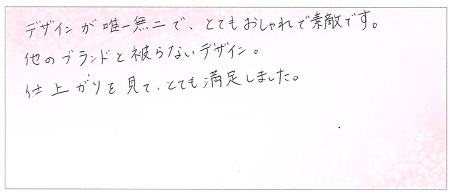 デザインが唯一無二で、とてもおしゃれで素敵です。
他のブランドと被らないデザイン。
仕上がりを見て、とても満足しました。